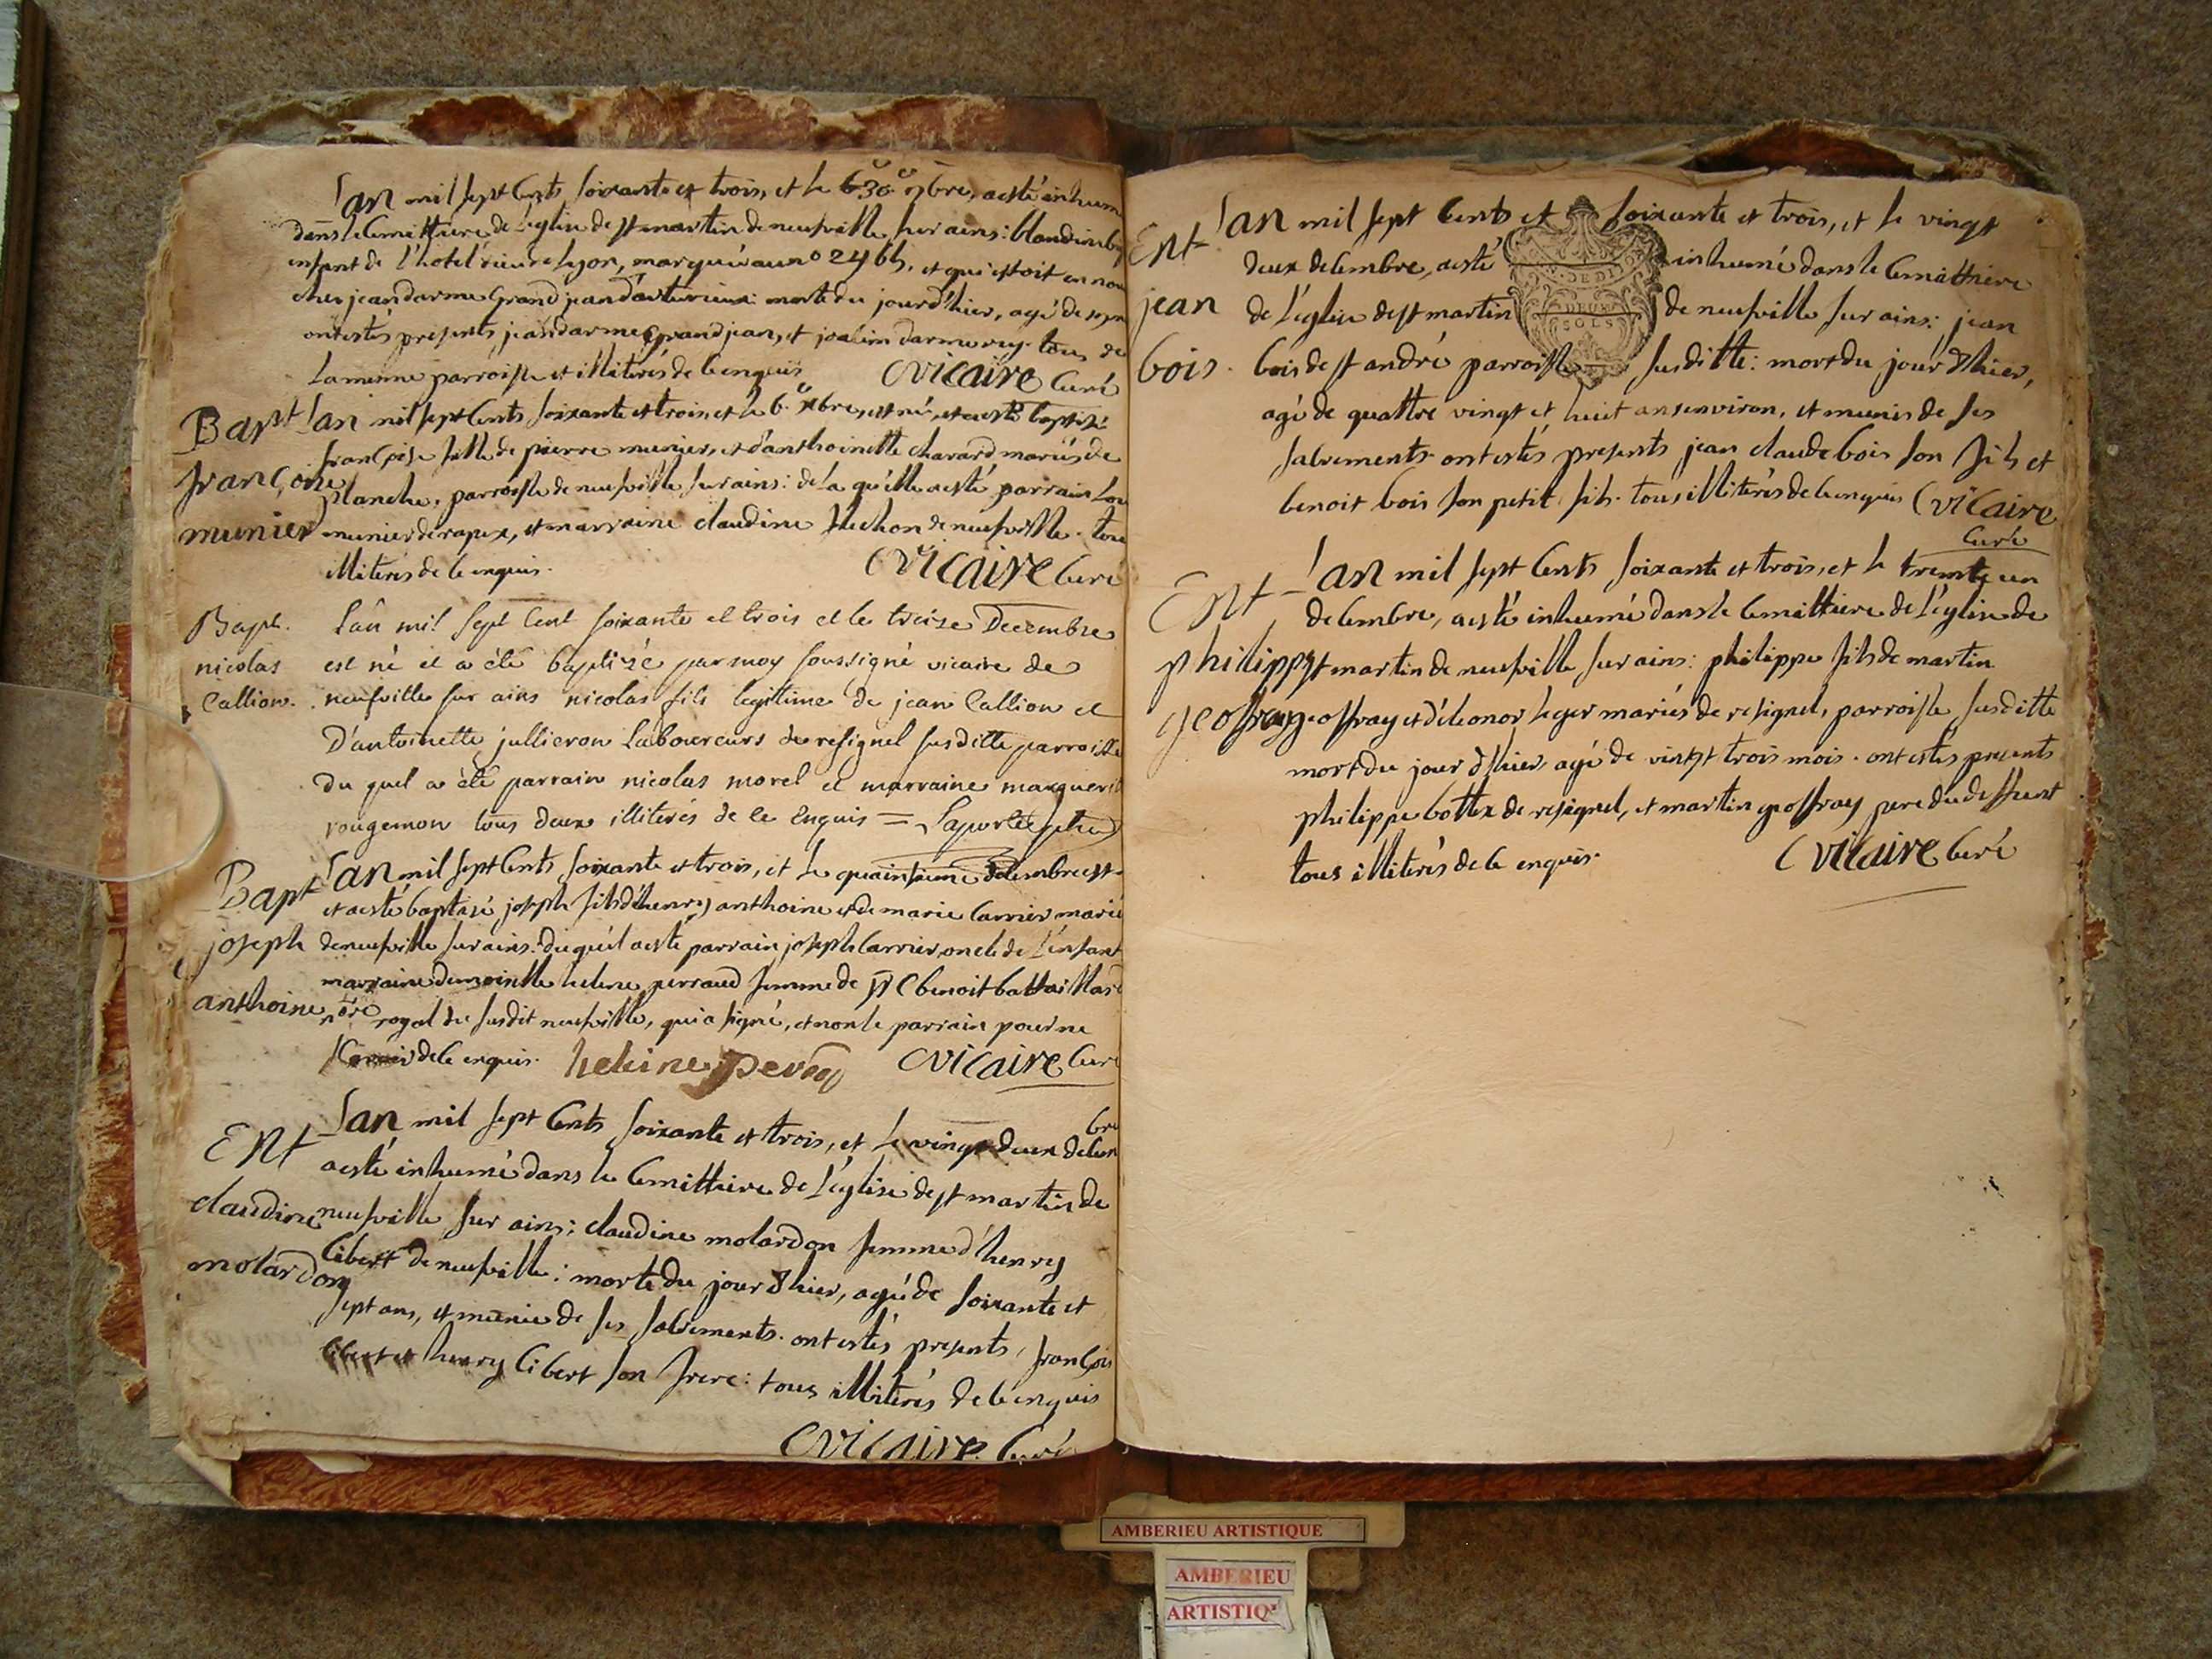 Lan mil sept Cents soixante et trois, et le 30e 9bre, a esté inhum
dans le Cemittiere de l'eglise de st martin de neufville sur ains: blandine
enfant de l'hotel Lyon, marqué au n° 2466, et qui estoit en
ches jean darme Grand jean morte du jour d'hier, agé de
ont estés presents jean darme grand jean, et joachim darme tous de
la meme parroisse et illiterés de ce enquis Cvicaire Curé
Bapt Lan mil sept Cents soixante et trois et le 6e xbre, est né, et a esté baptisé
françoise fille de pierre munier, et d'anthoinette chavard mariés de
françoise planche, parroisse de neufville sur ains: de la quelle a esté parrain
munier munier de rapex, et marraine claudine de neufville. tou
illiterés de ce enquis. Cvicaire Curé
Bapt. L'an mil sept Cent soixante et trois et le treize Decembre
nicolas est né et a été baptizé par moy soussigné vicaire de
Callion. neufville sur ains nicolas fils legitime de jean Callion et
D'antoinette jullieron Laboureurs de resignel susditte parroisse
du quel a été parrain nicolas morel et marraine marguerit
rougemon tous deux illiterés de ce Enquis =
Bapt Lan mil sept Cents soixante et trois, et le decembre est
et a esté baptasé joseph fils d'henry anthoine et de marie Carrier marié
joseph de neufville sur ains. du quel a esté parrain joseph Carrier oncle de l'enfant
marraine demoiselle helene perraud femme de benoit battaillard
anthoine royal du susdit neufville, qui a signé, et non le parrain pour ne
de ce enquis. helene Cvicaire Curé
Lan mil sept Cents soixante et trois, et le vingt deux decem
bre
Ent a esté inhumé dans le Cemittiere de l'église de st martin de
claudine neufville sur ains: claudine molardon femme d'henry
molardon Cibert de neufville: morte du jour d'hier, agé de soixante et
sept ans, et munie de ses sacrements. ont estés presents, françois
Cibert et henry Cibert son frere: tous illiterés de ce enquis
Cvicaire. Curé
Lan mil sept Cents et soixante et trois, et le vingt
Ent deux decembre, a esté inhumé dans le Cemittiere
jean de l'église de st martin de neufville sur ains: jean
bois. bois de st andré parroisse susditte: mort du jour d'hier,
agé de quattre vingt et huit ans environ, et munis de ses
sacrements. ont estés presents jean claude bois son fils et
benoit bois son petit fils. tous illiterés de ce enquis Cvicaire
Curé
Lan mil sept Cents soixante et trois, et le trente un
Ent decembre, a esté inhumé dans le Cemittiere de l'église de
philippe st martin de neufville sur ains: philippe fils de martin
geoffray geoffray et d'éleonor leger mariés de resignel, parroisse susditte
mort du jour d'hier, agé de vingt trois mois. ont estés presents
philippe bottex de resignel, et martin geoffray pere du deffunt
tous illiterés de ce enquis. Cvicaire Curé
DEUX
SOLS
AMBERIEU ARTISTIQUE
AMBERIEU
ARTISTIQ